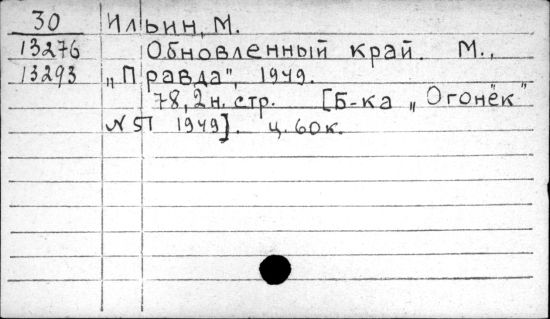 30 Ильин, М.
13276 Обновленный край. М.,
13293 „Правда", 1949.
78, 2н. стр. [Б-ка „Огонёк"
N 51 1949]. ц. 60к.